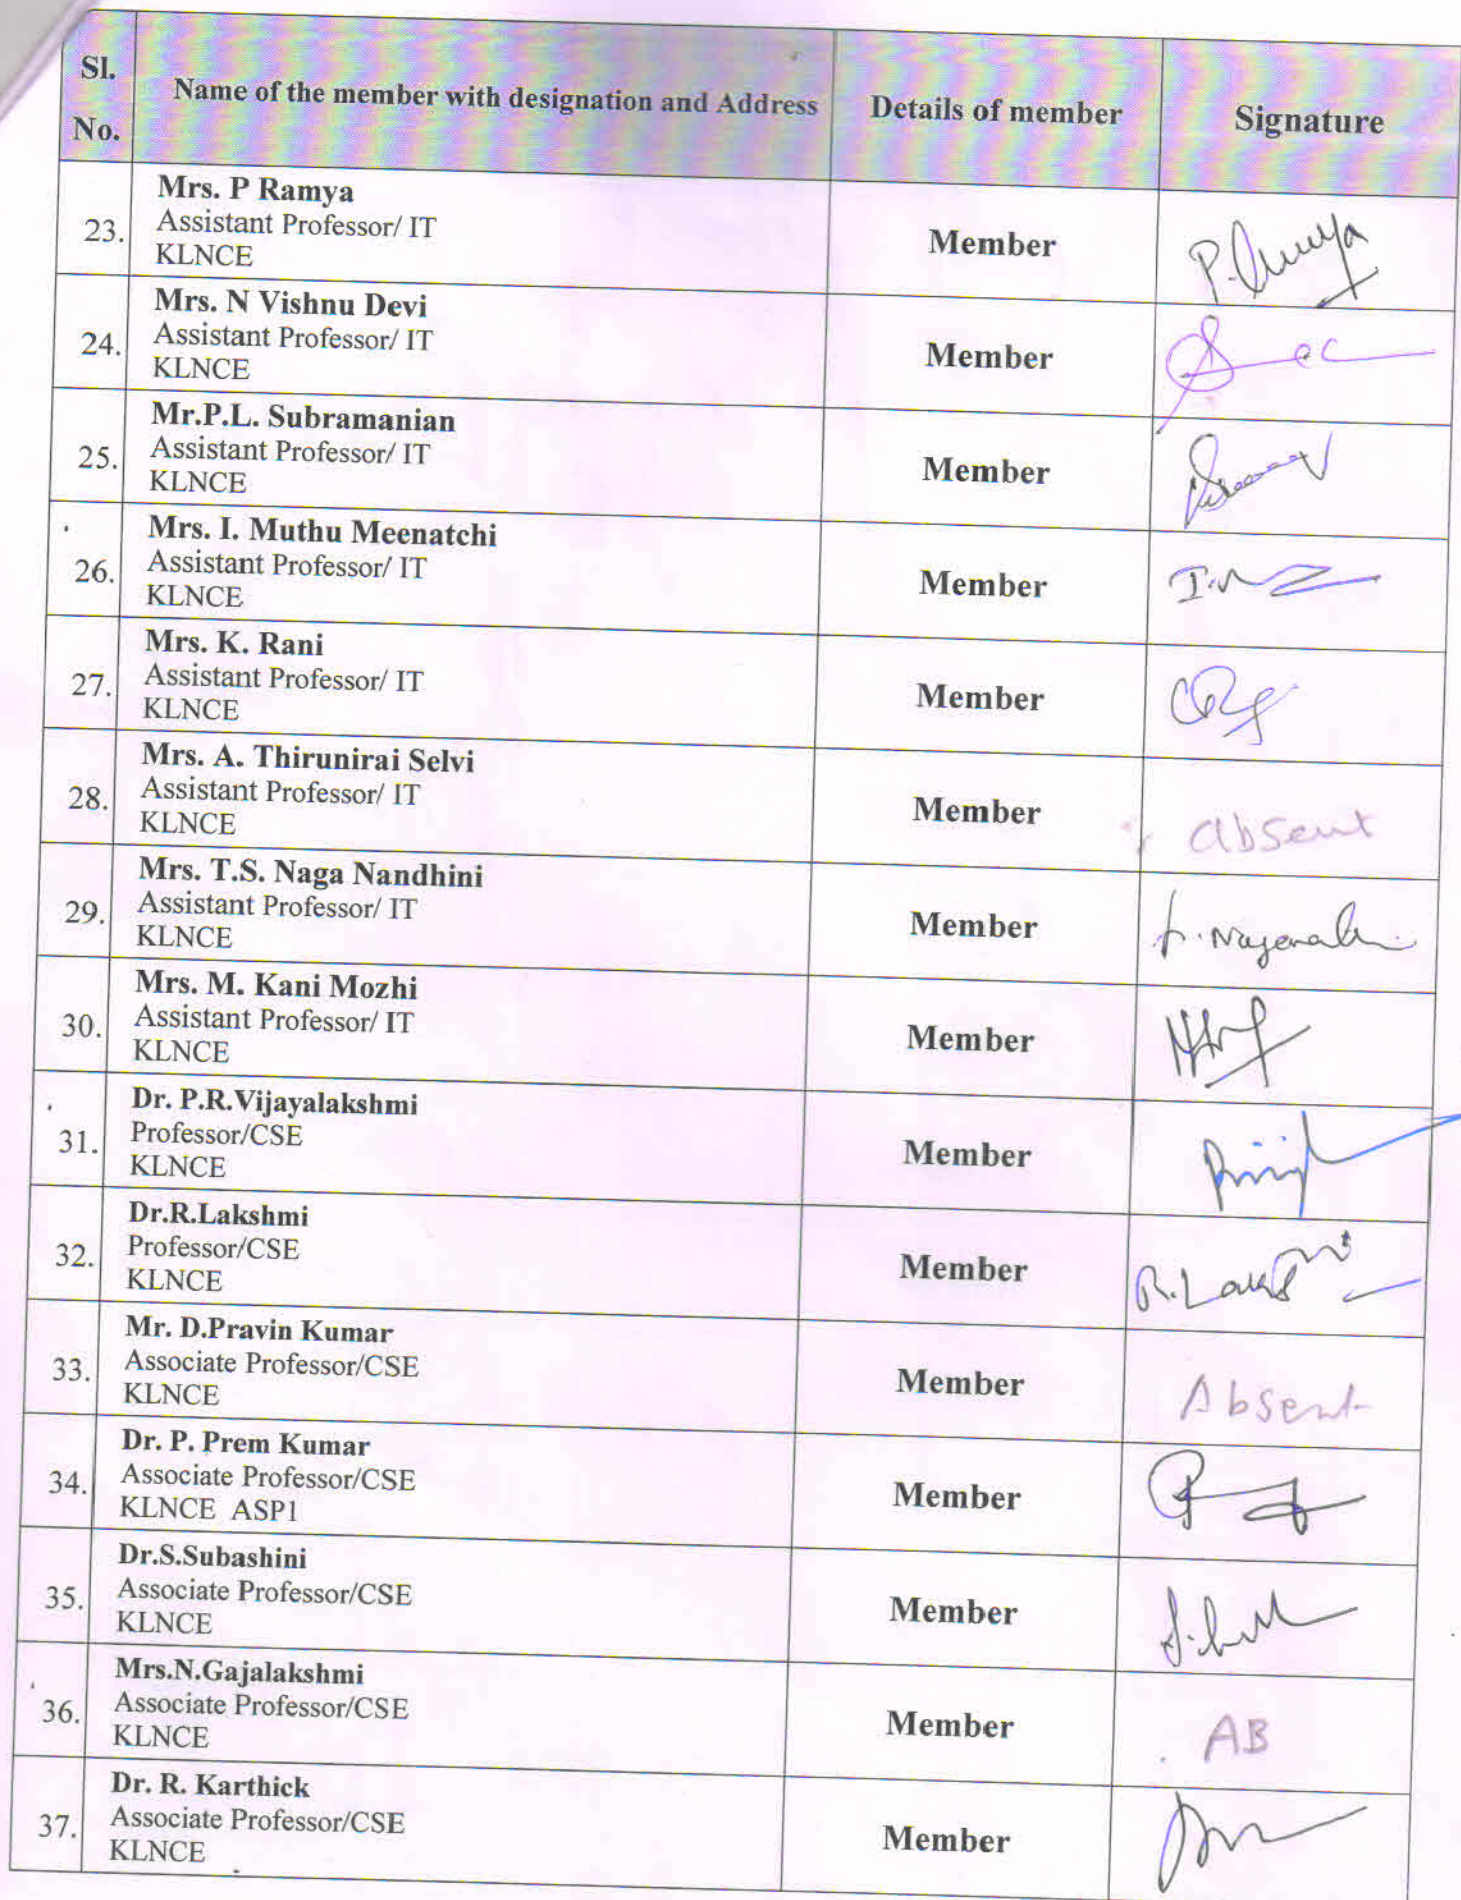 Sl. No. Name of the member with designation and Address Details of member Signature
23. Mrs. P Ramya
Assistant Professor/ IT
KLNCE
Member
P. Ramya
24. Mrs. N Vishnu Devi
Assistant Professor/ IT
KLNCE
Member
25. Mr.P.L. Subramanian
Assistant Professor/ IT
KLNCE
Member
26. Mrs. I. Muthu Meenatchi
Assistant Professor/ IT
KLNCE
Member
27. Mrs. K. Rani
Assistant Professor/ IT
KLNCE
Member
28. Mrs. A. Thirunirai Selvi
Assistant Professor/ IT
KLNCE
Member
absent
29. Mrs. T.S. Naga Nandhini
Assistant Professor/ IT
KLNCE
Member
30. Mrs. M. Kani Mozhi
Assistant Professor/ IT
KLNCE
Member
31. Dr. P.R.Vijayalakshmi
Professor/CSE
KLNCE
Member
32. Dr.R.Lakshmi
Professor/CSE
KLNCE
Member
R. Lakshmi
33. Mr. D.Pravin Kumar
Associate Professor/CSE
KLNCE
Member
Absent
34. Dr. P. Prem Kumar
Associate Professor/CSE
KLNCE ASP1
Member
35. Dr.S.Subashini
Associate Professor/CSE
KLNCE
Member
36. Mrs.N.Gajalakshmi
Associate Professor/CSE
KLNCE
Member
AB
37. Dr. R. Karthick
Associate Professor/CSE
KLNCE
Member